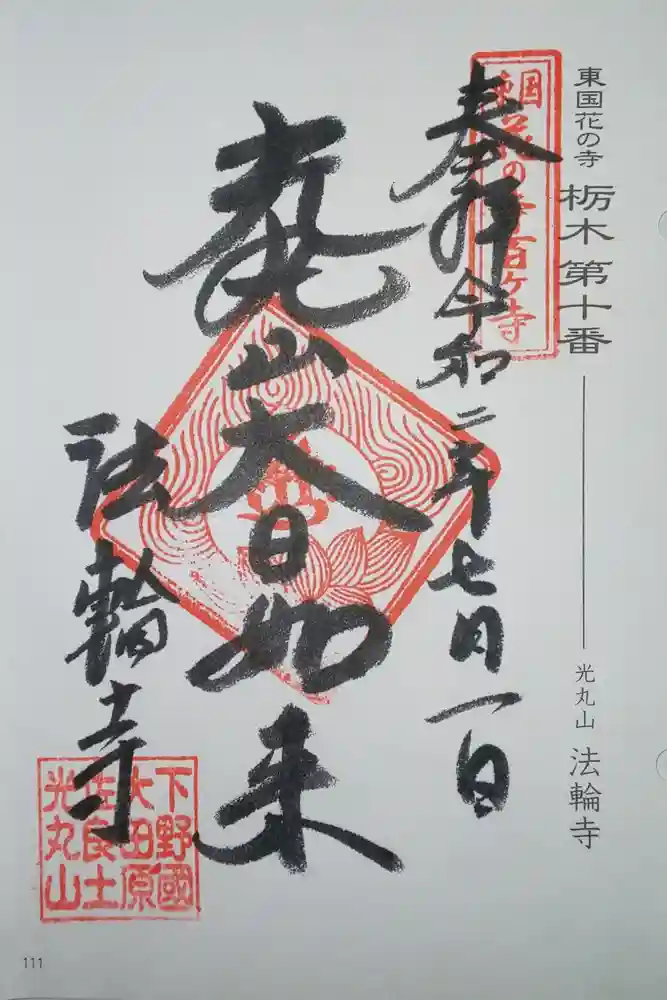 東国花の寺 栃木 第十番 光丸山 法輪寺
東国花の寺百ヶ寺
奉拝 令和二年七月一日
光丸山大日如来
法輪寺
下野國
大田原
佐良土
光丸山
111